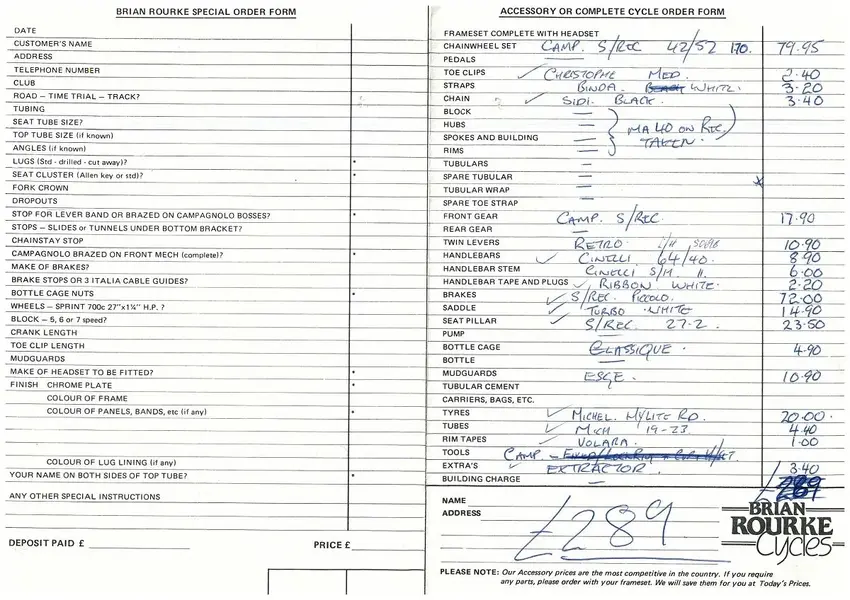 BRIAN ROURKE SPECIAL ORDER FORM
DATE
CUSTOMER'S NAME
ADDRESS
TELEPHONE NUMBER
CLUB
ROAD – TIME TRIAL – TRACK?
TUBING
SEAT TUBE SIZE?
TOP TUBE SIZE (if known)
ANGLES (if known)
LUGS (Std - drilled - cut away)? *
SEAT CLUSTER (Allen key or std)? *
FORK CROWN
DROPOUTS
STOP FOR LEVER BAND OR BRAZED ON CAMPAGNOLO BOSSES? *
STOPS – SLIDES or TUNNELS UNDER BOTTOM BRACKET?
CHAINSTAY STOP
CAMPAGNOLO BRAZED ON FRONT MECH (complete)? *
MAKE OF BRAKES?
BRAKE STOPS OR 3 ITALIA CABLE GUIDES?
BOTTLE CAGE NUTS *
WHEELS – SPRINT 700c 27"x1¼" H.P. ?
BLOCK – 5, 6 or 7 speed?
CRANK LENGTH
TOE CLIP LENGTH
MUDGUARDS
MAKE OF HEADSET TO BE FITTED? *
FINISH CHROME PLATE
COLOUR OF FRAME
COLOUR OF PANELS, BANDS, etc (if any) *
COLOUR OF LUG LINING (if any)
YOUR NAME ON BOTH SIDES OF TOP TUBE? *
ANY OTHER SPECIAL INSTRUCTIONS
DEPOSIT PAID £
PRICE £
ACCESSORY OR COMPLETE CYCLE ORDER FORM
FRAMESET COMPLETE WITH HEADSET
CHAINWHEEL SET CAMP. S/REC 42/52 170. 79.95
PEDALS —
TOE CLIPS ✓ CHRISTOPHE MED. 2.40
STRAPS BINDA. WHITE. 3.20
CHAIN ✓ SIDI. BLACK. 3.40
BLOCK —
HUBS — MA40 ON REC.
SPOKES AND BUILDING — TAKEN.
RIMS —
TUBULARS —
SPARE TUBULAR —
TUBULAR WRAP —
SPARE TOE STRAP —
FRONT GEAR CAMP. S/REC. 17.90
REAR GEAR —
TWIN LEVERS RETRO 10.90
HANDLEBARS ✓ CINELLI 64/40. 8.90
HANDLEBAR STEM CINELLI 6.00
HANDLEBAR TAPE AND PLUGS ✓ RIBBON WHITE. 2.20
BRAKES ✓ S/REC. PICCOLO. 72.00
SADDLE ✓ TURBO WHITE 14.90
SEAT PILLAR ✓ S/REC. 27.2. 23.50
PUMP —
BOTTLE CAGE CLASSIQUE. 4.90
BOTTLE —
MUDGUARDS ESGE. 10.90
TUBULAR CEMENT
CARRIERS, BAGS, ETC.
TYRES ✓ MICHEL. HYLITE RD. 20.00.
TUBES ✓ MICH 19-23. 4.40
RIM TAPES ✓ VOLARA. 1.00
TOOLS CAMP –
EXTRA'S ✓ EXTRACTOR. 3.40
BUILDING CHARGE — £289
NAME
ADDRESS
£289
BRIAN
ROURKE
Cycles
PLEASE NOTE: Our Accessory prices are the most competitive in the country. If you require
any parts, please order with your frameset. We will save them for you at Today's Prices.